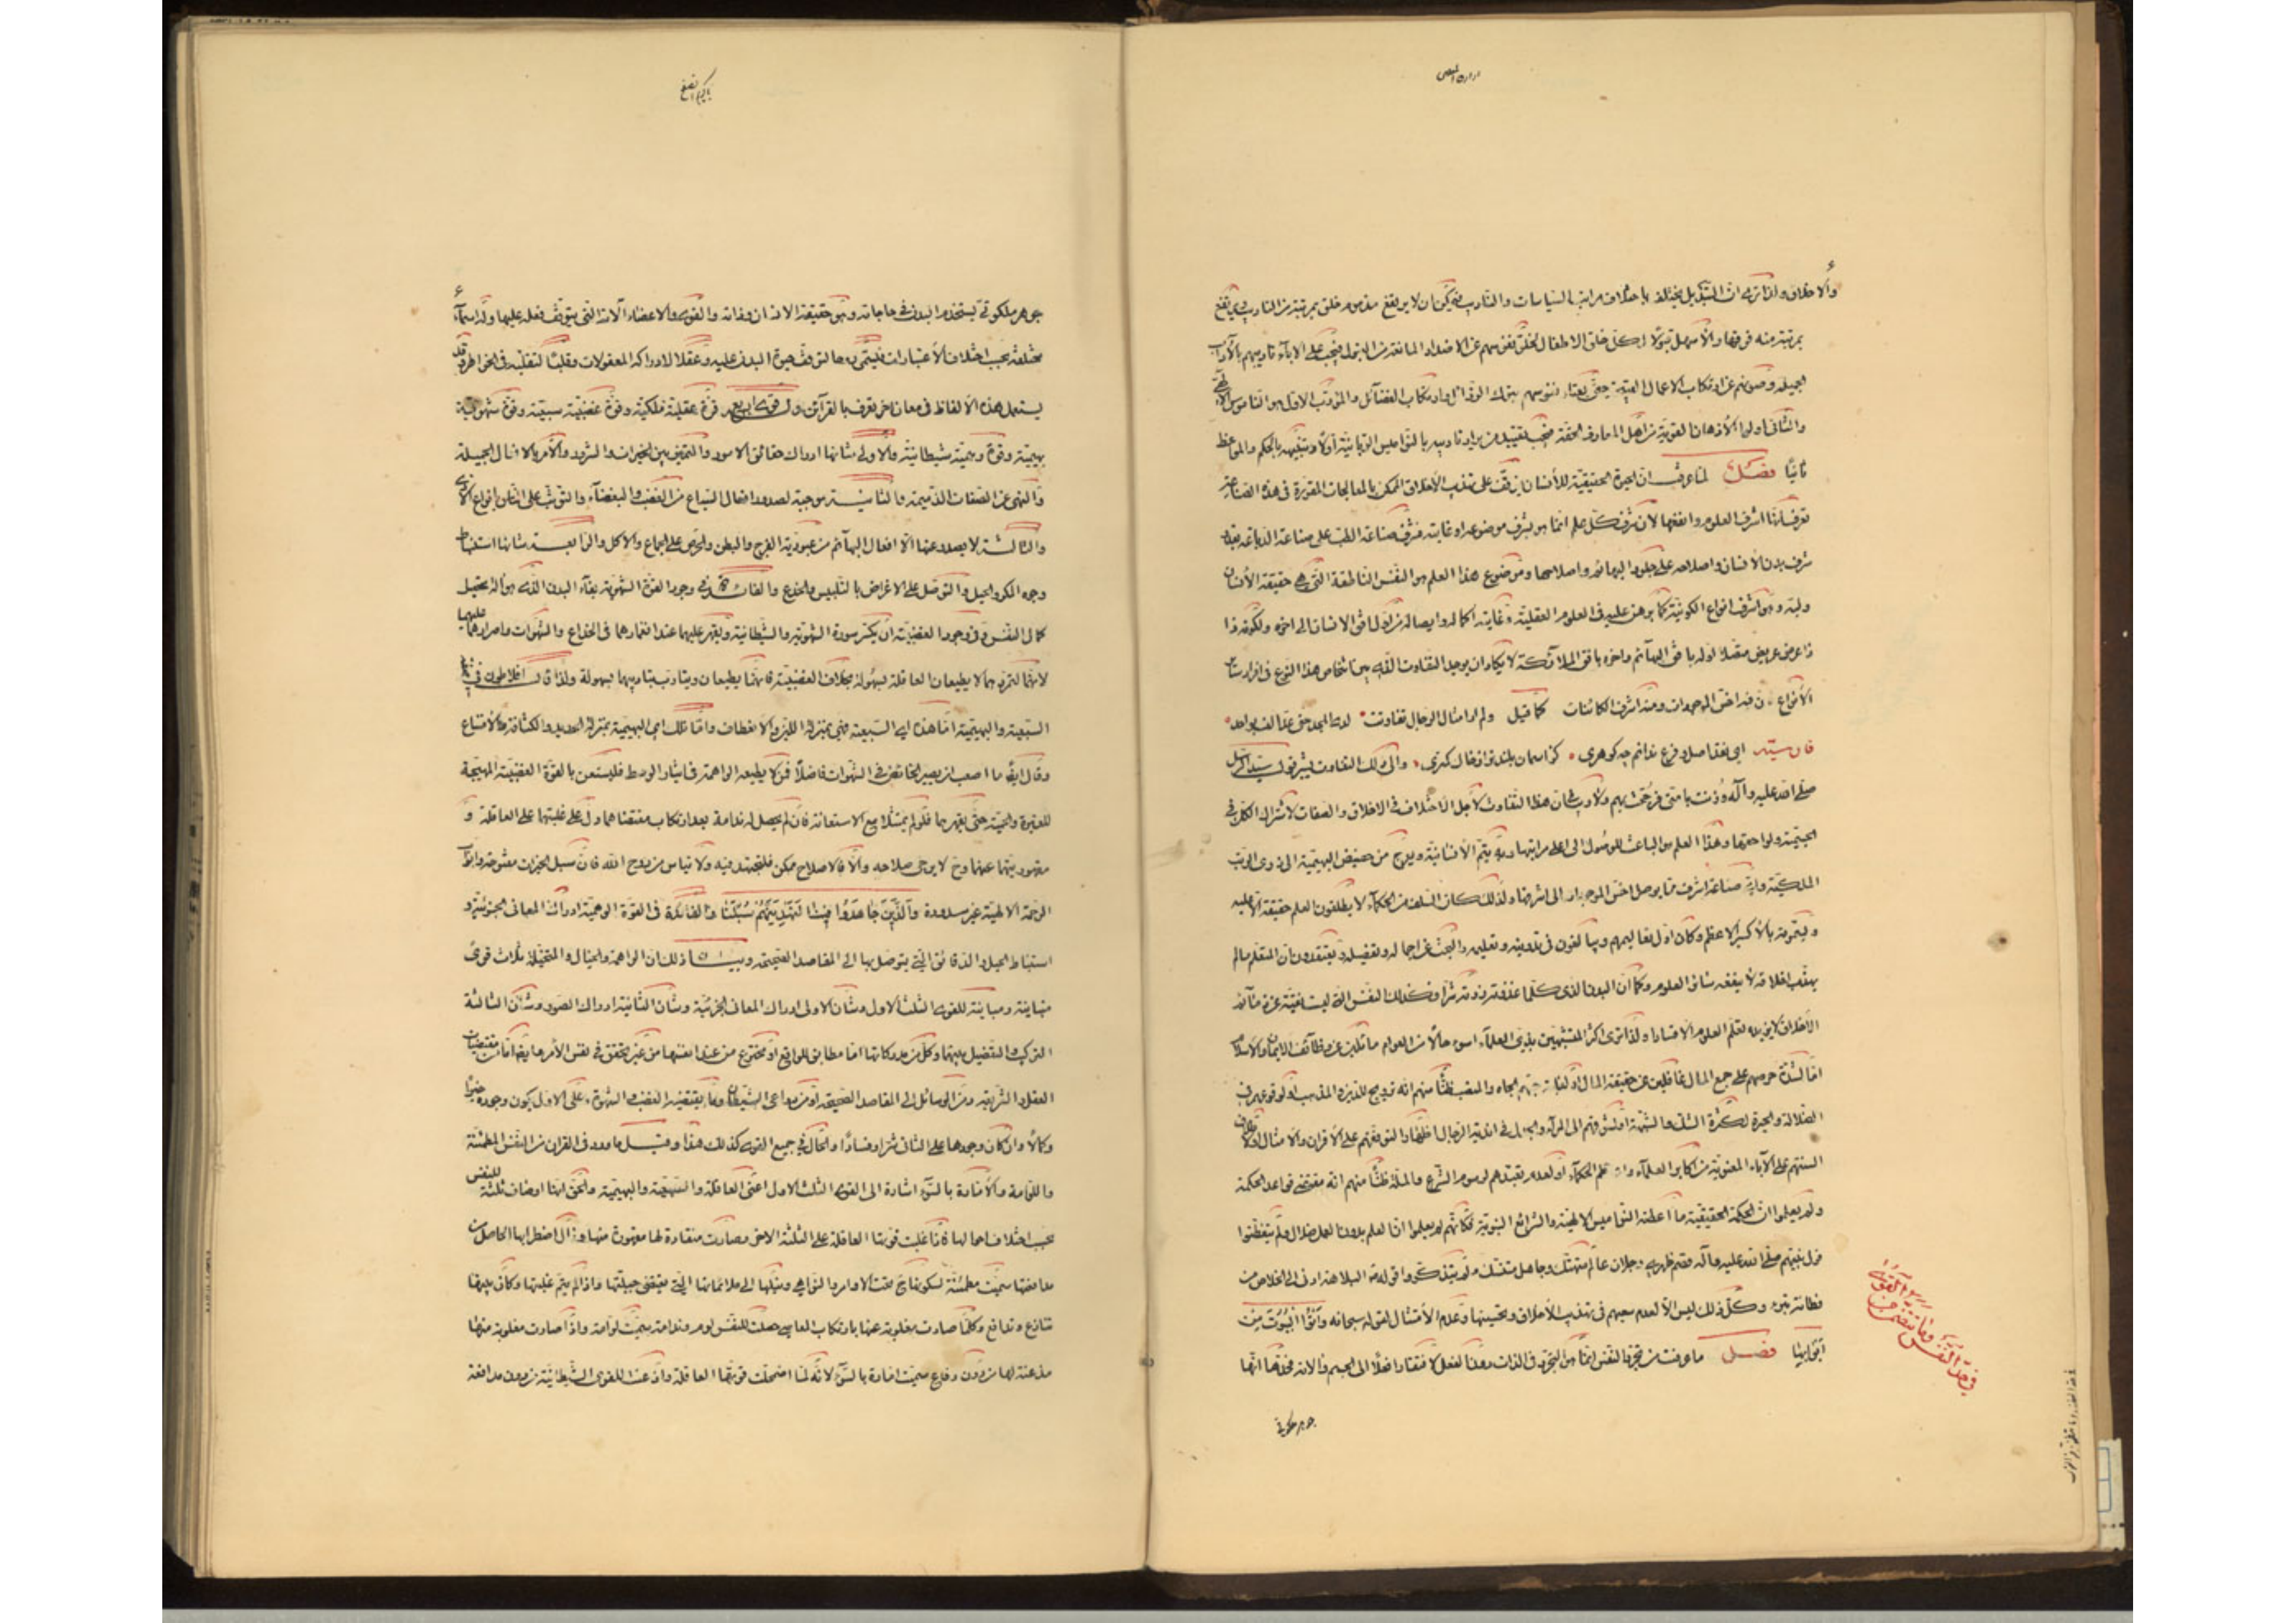 والاخلاق ولذا ترى ان التبديل يختلف باختلاف مراتب السياسات والتاديب فيمكن ان لا يرتفع مذموم خلق بمرتبة من التاديب ويرتفع
بمرتبة منه فوقها والاسهل قبولا لكل خلق الاطفال لخلو نفوسهم عن الاضداد المانعة من القبول فيجب على الاباء تاديبهم بالآداب
الجميلة وصونهم عن ارتكاب الاعمال القبيحة حتى تعتاد نفوسهم بترك الرذائل وارتكاب الفضائل والمؤدب الاول هو الناموس الالهى
والثانى اولوا الاذهان القويمة من اهل المعارف الحقة فيجب تقييد من يراد تاديبه بالنواميس الربانية اولا وتنبيهه بالحكم والمواعظ
ثانيا فصل لما عرفت ان الحيوة الحقيقية للانسان يتوقف على تهذيب الاخلاق الممكن بالمعالجات المقررة فى هذه الصناعة
تعرف انها اشرف العلوم وانفعها لان شرف كل علم انما هو بشرف موضوعه او غايته فشرف صناعة الطب على صناعة الدباغة بقدر
شرف بدن الانسان واصلاحه على جلود البهائم واصلاحها وموضوع هذا العلم هو النفس الناطقة التى هى حقيقة الانسان
ولبه وهو اشرف انواع الكونية كما برهن عليه فى العلوم العقلية وغايته اكماله وايصاله من اول افق الانسان الى اخره ولكونه ذا
ذا عرض عريض متصلا اوله بافق البهائم واخره بافق الملائكة لا يكاد ان يوجد التفاوت الذى بين اشخاص هذا النوع فى افراد سائر
الانواع فان فيه اخس الموجودات ومنه اشرف الكائنات كما قيل ولم ار امثال الرجال تفاوتت لدى المجد حتى عد الف بواحد
اى نقد اصل و فرع ندانم چه كوهرى كز اسمان بلند تر از خاك كمترى والى ذلك التفاوت يشير قول سيد الرسل
صلى الله عليه وآله وزنت بامتى فرجحت بهم ولا ريب فى ان هذا التفاوت لاجل الاختلاف فى الاخلاق والصفات لاشتراك الكل فى
الجسمية ولواحقها وهذا العلم هو الباعث للوصول الى اعلى مراتبها وبه يتم الانسانية ويعرج من حضيض البهيمية الى ذرى الرتب
الملكية واية صناعة اشرف مما يوصل اخس الموجودات الى اشرفها ولذلك كان السلف من الحكماء لا يطلقون العلم حقيقة الا عليه
ويسمونه بالاكسير الاعظم وكان اول تعاليمهم ويبالغون فى تدوينه وتعليمه والبحث عن اجماله وتفصيله ويعتقدون ان المتعلم ما لم
يهذب اخلاقه لا ينفعه سائر العلوم وكما ان البدن الذى كلما غذوته زدته شرا فكذلك النفس التى ليست نقية عن ذمائم
الاخلاق لا يزيده تعلم العلوم الا فسادا ولذا ترى اكثر المتشبهين بزى العلماء اسوء حالا من العوام مائلين عن وظائف الايمان والاسلام
اما لشدة حرصهم على جمع المال غافلين عن حقيقة المال او لغلبة حبهم الجاه والمنصب ظنا منهم انه ترويج للدين والمذهب او لوقوعهم فى
الضلالة والحيرة لكثرة الشك والشبهة او لشوقهم الى المراء والجدال فى اندية الرجال اظهارا لتفوقهم على الاقران والامثال او لاطلاق
السنتهم على الآباء المعنوية من اكابر العلماء واعاظم الحكماء او لعدم تعبدهم برسوم الشرع والملة ظنا منهم انه مقتضى قواعد الحكمة
ولم يعلموا ان الحكمة الحقيقية ما اعطته النواميس الالهية والشرائع النبوية فكانهم لم يعلموا ان العلم بدون العمل ضلال ولم يتفطنوا
قول نبيهم صلى الله عليه وآله قصم ظهرى رجلان عالم متهتك وجاهل متنسك ولم يتذكروا قوله البلاهة ادنى الى الخلاص من
فطانة بتراء وكل ذلك ليس الا لعدم سعيهم فى تهذيب الاخلاق وتحسينها وعدم الامتثال لقوله سبحانه واتوا البيوت من
ابوابها فصل ما عرفت من تجرد النفس انما هو التجرد فى الذات دون الفعل لافتقارها فعلا الى الجسم والالة فحدها انها
جوهر ملكوتى
جوهر ملكوتى يستخدم البدن فى حاجاته وهو حقيقة الانسان وذاته والقوى والاعضاء آلاته التى يتوقف فعله عليها وله اسماء
مختلفة بحسب اختلاف الاعتبارات فيسمى روحا لتوقف حيوة البدن عليه وعقلا لادراكه المعقولات وقلبا لتقلبه فى الخواطر وقد
يستعمل هذه الالفاظ فى معان اخر تعرف بالقرائن وله قوى اربع قوة عقلية ملكية وقوة غضبية سبعية وقوة شهوية
بهيمية وقوة وهمية شيطانية والاولى شانها ادراك حقائق الامور والتمييز بين الخيرات والشرور والامر بالافعال الجميلة
والنهى عن الصفات الذميمة والثانية موجبة لصدور افعال السباع من الغضب والبغضاء والتوثب على الناس بانواع الاذى
والثالثة لا يصدر عنها الا افعال البهائم من عبودية الفرج والبطن والحرص على الجماع والاكل والرابعة شانها استنباط
وجوه المكر والحيل والتوصل على الاغراض بالتلبيس والخدع والفائدة فى وجود القوة الشهوية بقاء البدن الذى هو آلة تحصيل
كمال النفس وفى وجود الغضبية ان يكسر سورة الشهوية والشيطانية ويقهر عليهما عند انغمارهما فى الخداع والشهوات واصرارهما عليهما
لانهما لتمردهما لا يطيعان العاقلة بسهولة بخلاف الغضبية فانهما يطيعان ويتادب بتاديبها بسهولة ولذا قال افلاطون فى صفة
السبعية والبهيمية اما هذه اى السبعية فهى بمنزلة الذهب فى اللين والانعطاف واما تلك اى البهيمية بمنزلة الحديد فى الكثافة والامتناع
وقال ايضا ما اصعب ان يصير الخائض فى الشهوات فاضلا فمن لا يطيعه الواهمة فى ايثار الوسط فليستعن بالقوة الغضبية المهيجة
للغيرة والحمية حتى يقهرهما فلو لم يمتثلا مع الاستعانة فان لم يحصل له ندامة بعد ارتكاب مقتضاهما دل على غلبتهما على العاقلة و
مقهوريتها عنهما وح لا يرجى صلاحه والا فالاصلاح ممكن فليجتهد فيه ولا تياس من روح الله فان سبل الخيرات مفتوحة وابواب
الرحمة الالهية غير مسدودة والذين جاهدوا فينا لنهدينهم سبلنا والفائدة فى القوة الوهمية ادراك المعانى الجزئية و
استنباط الحيل والدقائق التى يتوصل بها الى المقاصد الصحيحة وبيان ذلك ان الواهمة والخيال والمتخيلة ثلاث قوى
متباينة ومباينة للقوى الثلث الاول وشان الاولى ادراك المعانى الجزئية وشان الثانية ادراك الصور وشان الثالثة
التركيب والتفصيل بينهما وكل من مدركاتها اما مطابق للواقع او مخترع من عند انفسها من غير تحقق فى نفس الامر ايضا اما من مقتضيات
العقل والشريعة ومن الوسائل الى المقاصد الصحيحة او من دواعى الشيطان وما يقتضيه الغضب والشهوة وعلى الاول يكون وجودها خيرا
وكمالا وان كان وجودها على الثانى شرا وفسادا والحال فى جميع القوى كذلك هذا وقيل ما ورد فى القران من النفس المطمئنة
واللوامة والامارة بالسوء اشارة الى القوى الثلث الاول اعنى العاقلة والسبعية والبهيمية والحق انها اوصاف ثلثة للنفس
بحسب اختلاف احوالها فاذا غلبت قوتها العاقلة على الثلثة الاخر وصارت منقادة لها مقهورة منها وزال اضطرابها الحاصل من
مدافعتها سميت مطمئنة لسكونها ح تحت الاوامر والنواهى وميلها الى ملائماتها التى يقتضى جبلتها واذا لم يتم غلبتها وكان بينها
تنازع وتدافع وكلما صارت مغلوبة عنها بارتكاب المعاصى حصلت للنفس لوم وندامة سميت لوامة واذا صارت مغلوبة منها
مذعنة لها من دون دفاع سميت امارة بالسوء لانه لما اضمحلت قوتها العاقلة واذعنت للقوى الشيطانية من دون مدافعة